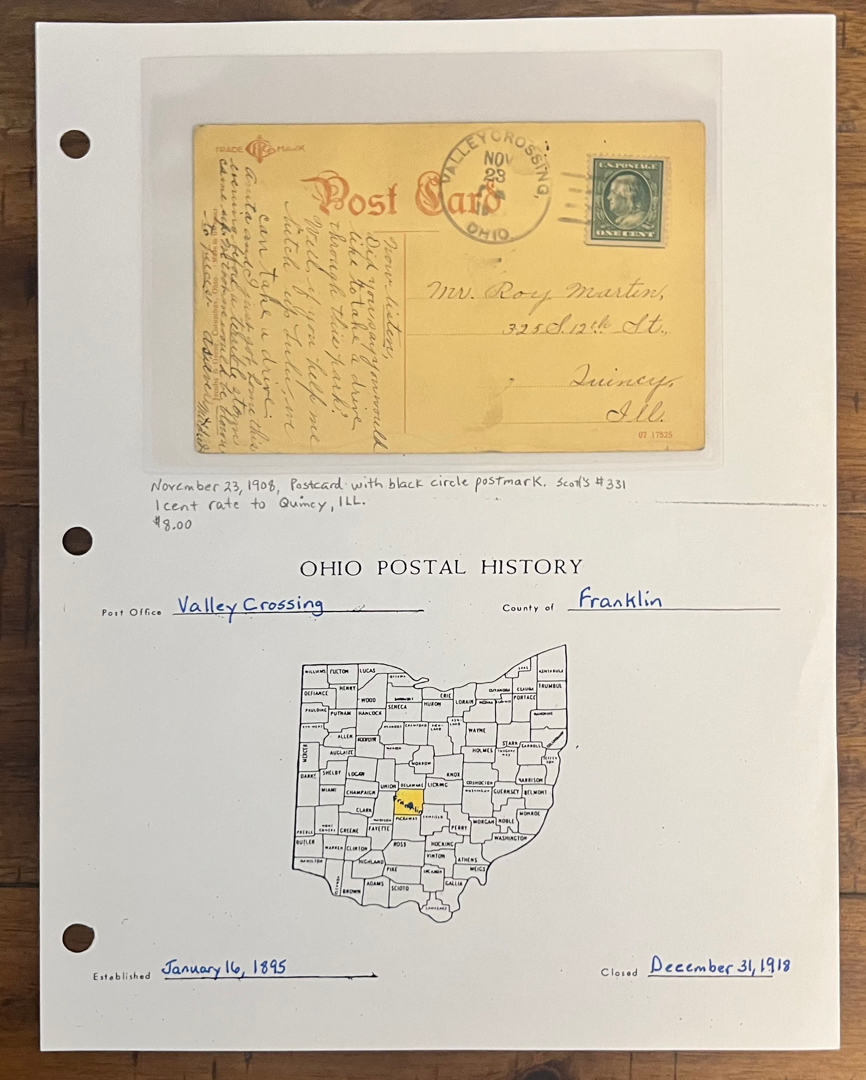 TRADE MARK
Post Card
VALLEY CROSSING,
NOV
23
OHIO.
U.S. POSTAGE
ONE CENT
Now listen,
Did you say you would
like to take a drive
through this park?
Well, if you help me
hitch up Lulu, we
can take a drive.
Anita and I just got home this
evening
came up
Mr. Roy Martin,
325 S. 12th St.,
Quincy,
Ill.
07 17525
November 23, 1908, Postcard with black circle postmark. Scott's #331
1 cent rate to Quincy, ILL.
$8.00
OHIO POSTAL HISTORY
Post Office Valley Crossing
County of Franklin
WILLIAMS FULTON LUCAS OTTAWA ASHTABULA
DEFIANCE HENRY WOOD SANDUSKY ERIE LORAIN CUYAHOGA GEAUGA TRUMBUL
PAULDING PUTNAM HANCOCK SENECA HURON MEDINA SUMMIT PORTAGE
ALLEN WYANDOT CRAWFORD WAYNE STARK MAHONING
MERCER AUGLAIZE HARDIN MARION HOLMES CARROLL
DARKE SHELBY LOGAN MORROW KNOX COSHOCTON HARRISON
MIAMI CHAMPAIGN UNION DELAWARE LICKING GUERNSEY BELMONT
CLARK Franklin MONROE
PREBLE GREENE FAYETTE PICKAWAY PERRY MORGAN NOBLE
BUTLER WARREN CLINTON ROSS HOCKING WASHINGTON
HAMILTON HIGHLAND PIKE VINTON ATHENS MEIGS
BROWN ADAMS SCIOTO GALLIA
Established January 16, 1895
Closed December 31, 1918